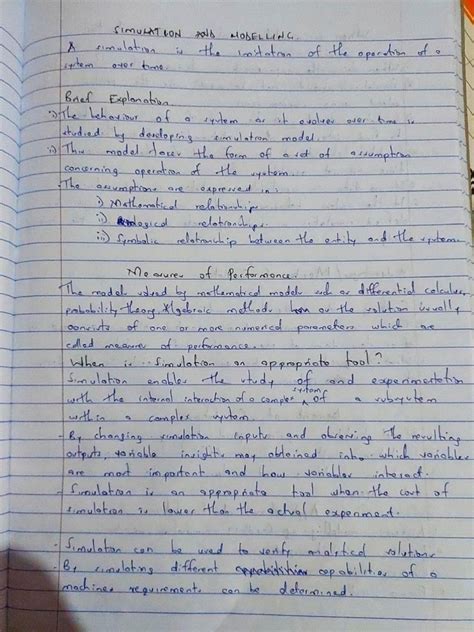 SIMULATION AND MODELLING.
A simulation is the imitation of the operation of a
system over time.
Brief Explanation
i) The behaviour of a system as it evolves over time is
studied by developing simulation model.
ii) This model takes the form of a set of assumption
concerning operation of the system.
- The assumptions are expressed in:
i) Mathematical relationships
ii) Logical relationships
iii) Symbolic relationship between the entity and the system.
Measures of Performance.
- The models by mathematical models such as differential calculus,
probability theory, Algebraic methods, the solution usually
consists of one or more numerical parameters which are
called measures of performance.
When is Simulation an appropriate tool?
Simulation enables the study of and experimentation
with the internal interaction of a complex system, of a subsystem
within a complex system.
- By changing simulation inputs and observing the resulting
outputs, insights may obtained into which variables
are most important and how variables interact.
- Simulation is an appropriate tool when the cost of
simulation is lower than the actual experiment.
- Simulation can be used to verify analytical solutions.
- By simulating different capabilities of a
machines requirements can be determined.